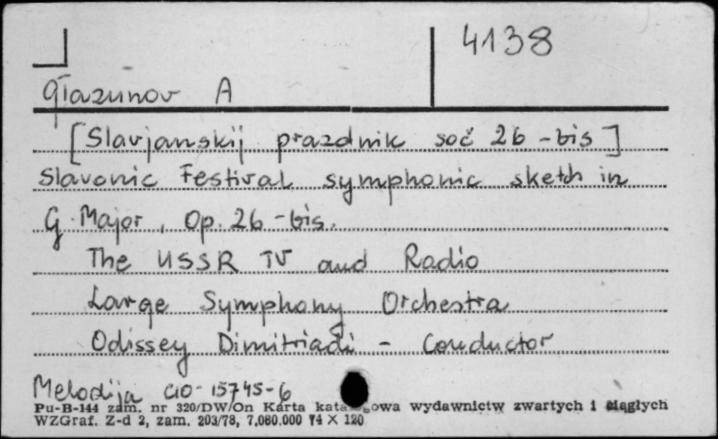 4138
Głazunov A
[Slavjanskij prazdnik soč 26-bis]
Slavonic Festival symphonic sketch in
G Major, Op. 26-bis.
The USSR TV and Radio
Large Symphony Orchestra
Odissey Dimitriadi - Conductor
Melodija C10-15745-6
Pu-B-144 zam. nr 320/DW/On Karta katalogowa wydawnictw zwartych i ciągłych
WZGraf. Z-d 2, zam. 203/78, 7,000.000 74 X 120